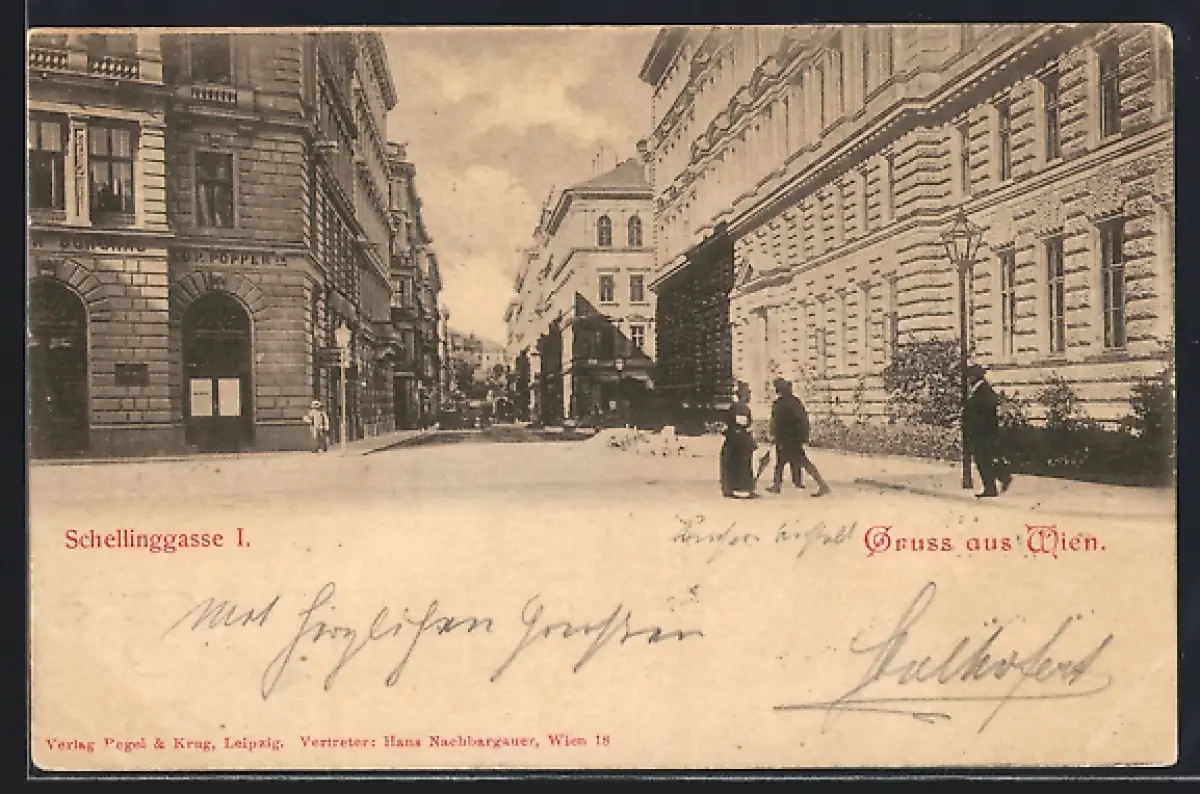 POPPER
Schellinggasse I.
Gruss aus Wien.
Mit herzlichen Grüssen
Verlag Pegel & Krug, Leipzig. Vertreter: Hans Nachbargauer, Wien 18